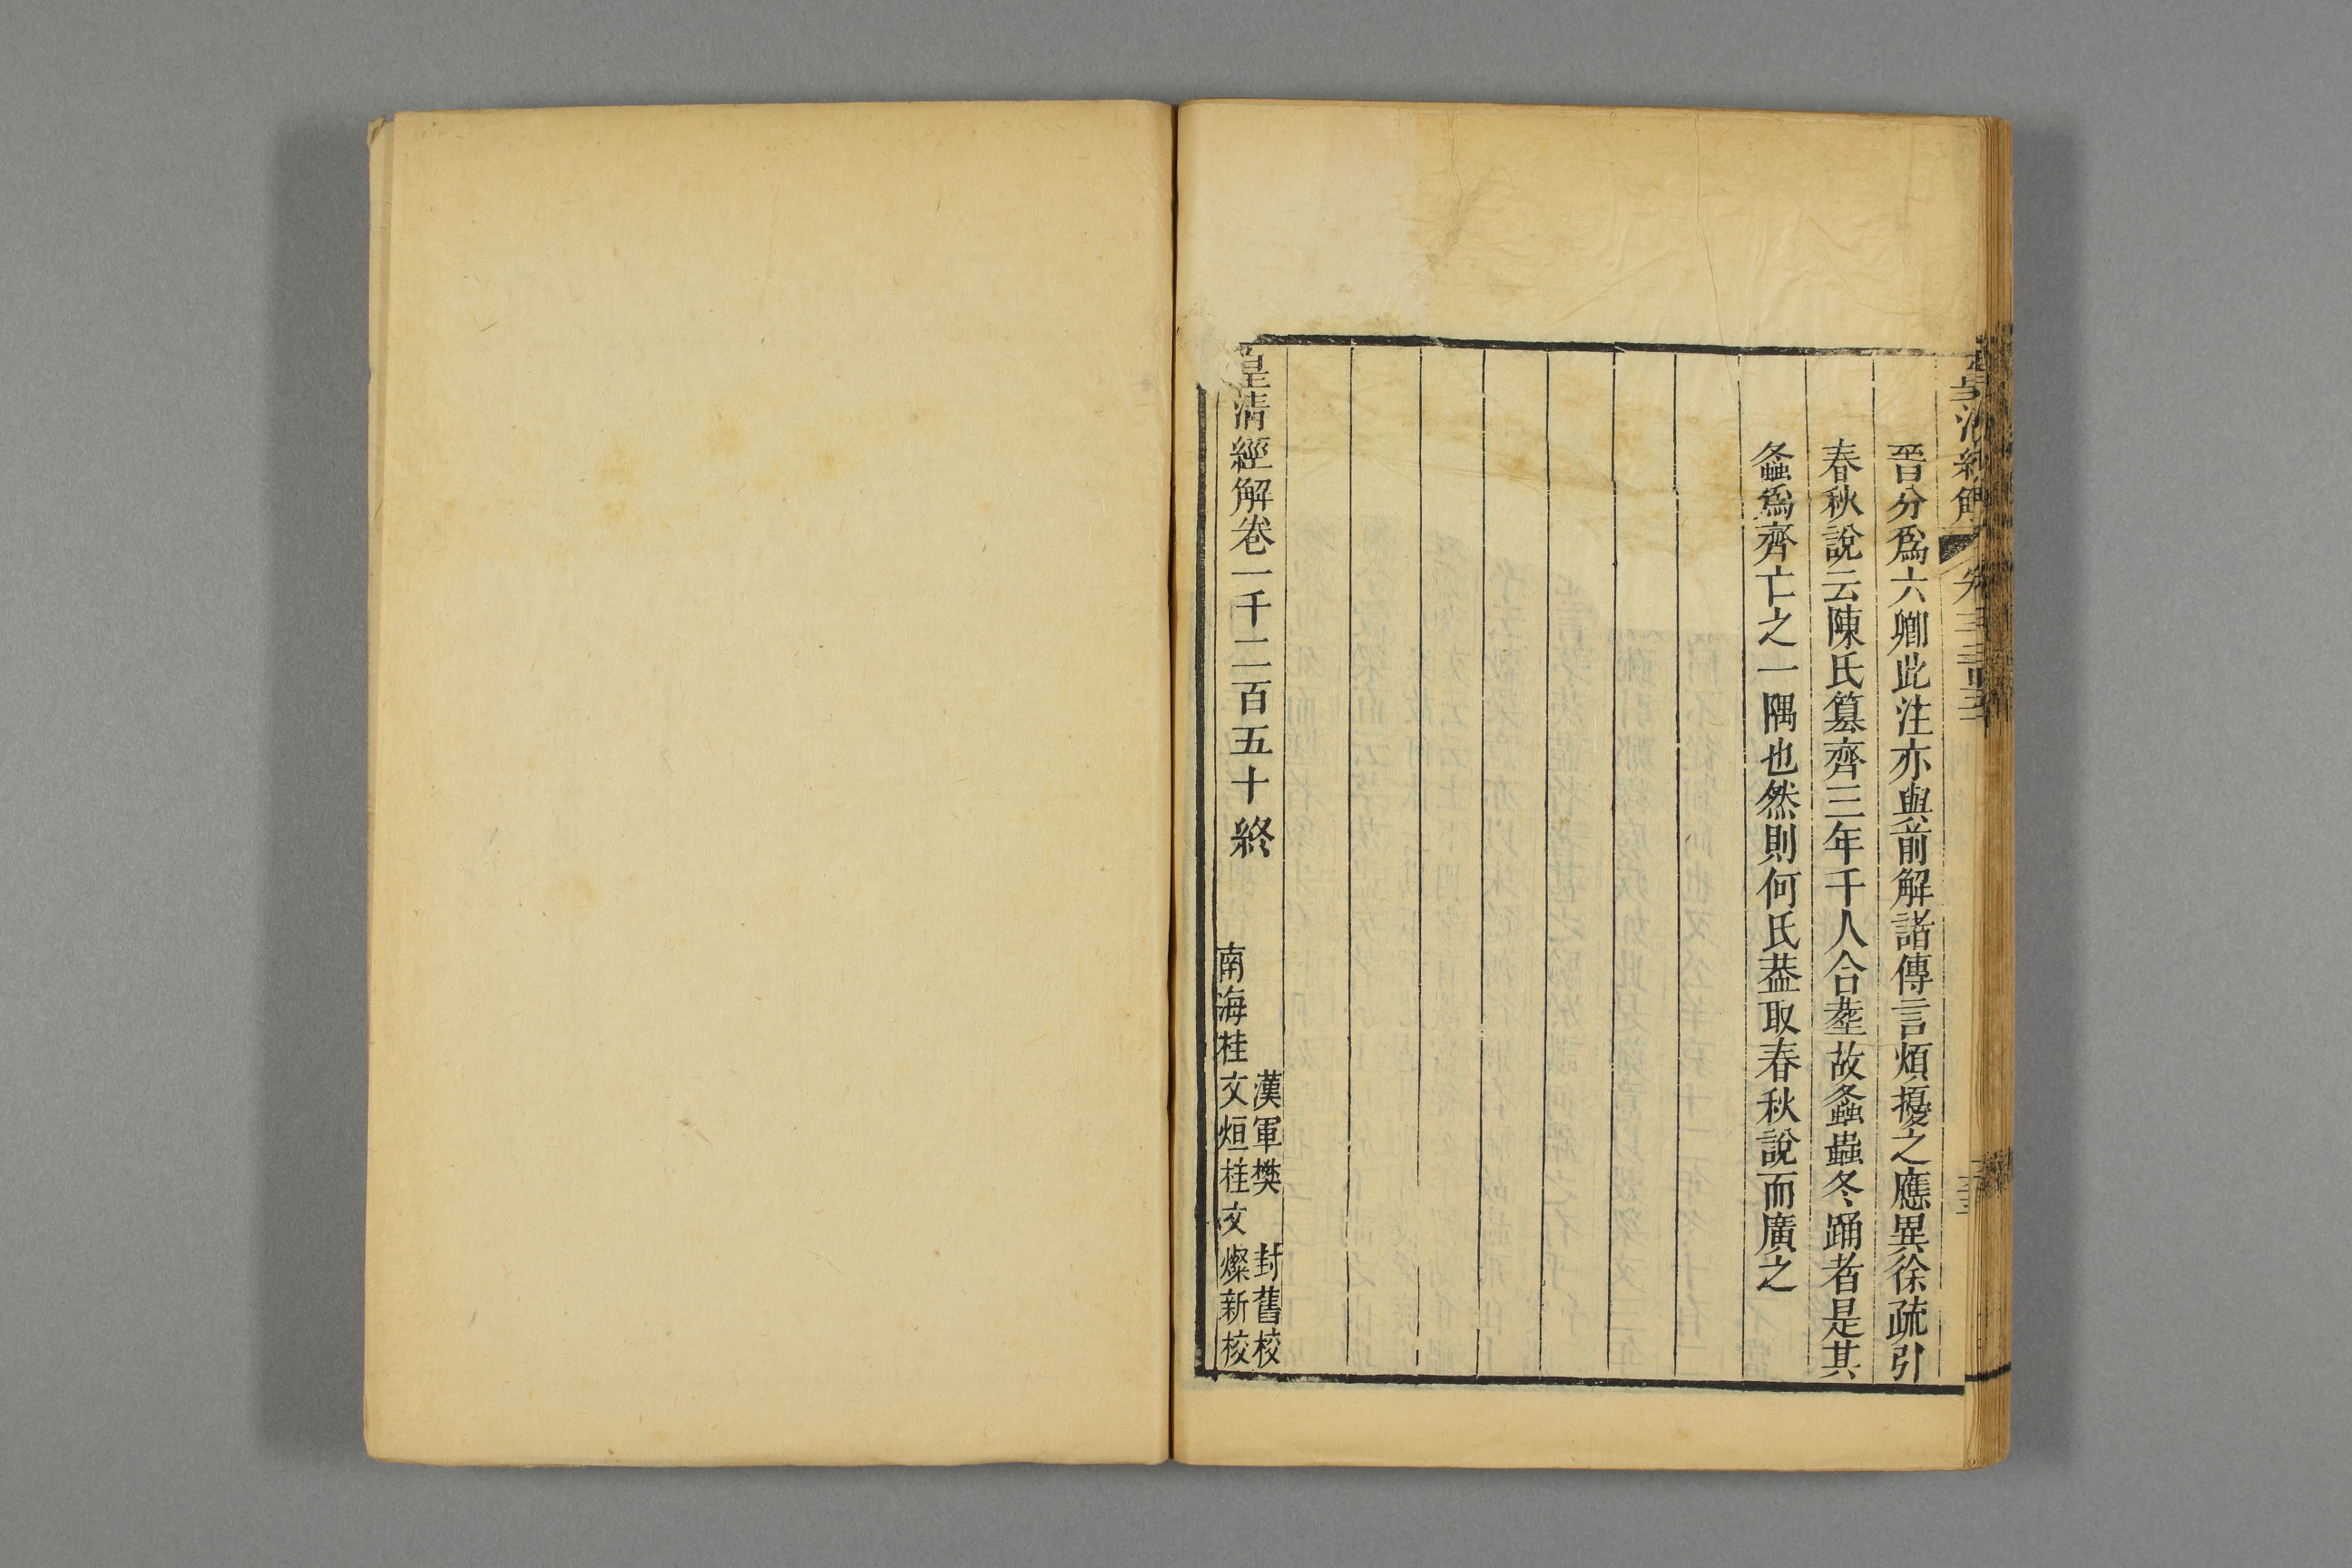 皇清經解
晉分爲六卿此注亦與前解諸傳言煩擾之應異徐疏引
春秋說云陳氏篡齊三年千人合葬故螽蟲冬踊者是其
螽爲齊亡之一隅也然則何氏葢取春秋說而廣之
皇清經解卷一千二百五十終
漢軍樊封舊校
南海桂文烜桂文燦新校